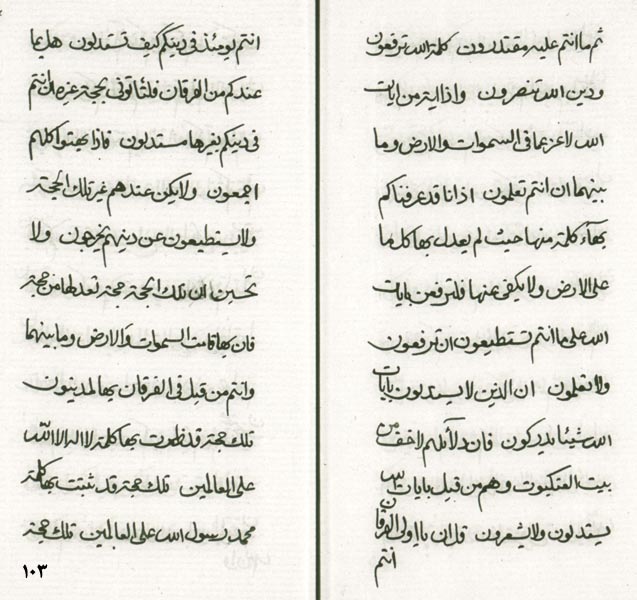 ثم ما انتم عليه مقتدرون كلمة الله ترفعون
و دين الله تنصرون و اذا اية من ايات
الله لاعز عما فى السموات و الارض و ما
بينهما ان انتم تعلمون اذ انا قد عرفناكم
بهاء كلمة منها حيث لم يعدل بها كل ما
على الارض و لا يكفى عنها فلترفعن بايات
الله على ما انتم تستطيعون ان ترفعون
و لا تغلمون ان الذين لا يستدلون بايات
الله شيئا يدركون فان دلائلهم لاخف من
بيت العنكبوت و هم من قبل بايات الله
يستدلون و لا يشعرون قل ان يا اولى الفرقان
انتم
انتم يومئذ فى دينكم كيف تستدلون هل بما
عندكم من الفرقان فلتاتونى بحجة غيره ان انتم
فى دينكم بغيرها مستدلون فاذا بهتوا كلهم
اجمعون و لا يكن عندهم غير تلك الحجة
و لا يستطيعون عن دينهم يخرجون و لا
تحسبن ان تلك الحجة حجة تعدلها من حجة
فان بها قامت السموات و الارض و ما بينهما
و انتم من قبل فى الفرقان بها لمدينون
تلك حجة قد ظهرت بها كلمة لا اله الا الله
على العالمين تلك حجة قد ثبتت بها كلمة
محمد رسول الله على العالمين تلك حجة
١٠٣